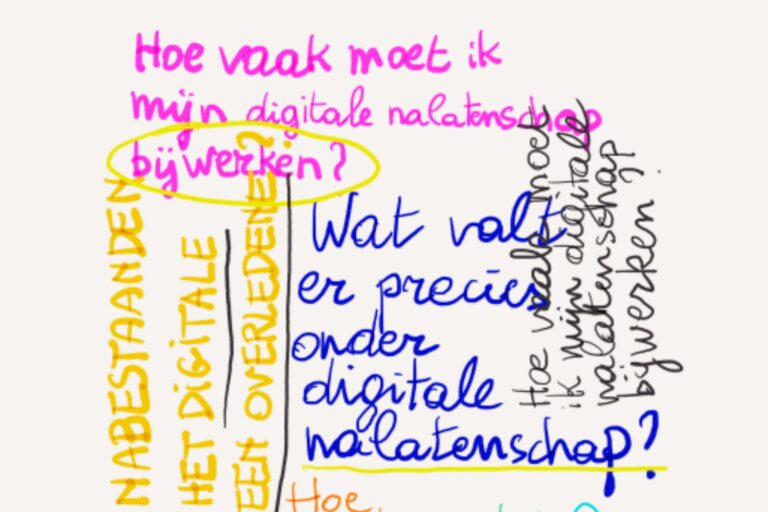 Hoe vaak moet ik
mijn digitale nalatenschap
bijwerken?
Wat valt
er precies
onder
digitale
nalatenschap?
Hoe vaak moet
ik mijn digitale
nalatenschap
bijwerken?
NABESTAANDEN
HET DIGITALE
EEN OVERLEDENE?
Hoe